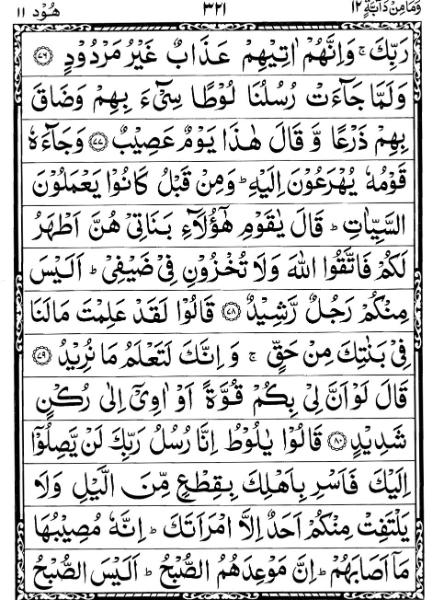 وَمَا مِنْ دَآبَّةٍ ١٢ ٣٢١ هُوْد ١١
رَبِّكَ ۚ وَاِنَّهُمْ اٰتِيْهِمْ عَذَابٌ غَيْرُ مَرْدُوْدٍ ﴿٧٦﴾
وَلَمَّا جَآءَتْ رُسُلُنَا لُوْطًا سِيْٓءَ بِهِمْ وَضَاقَ
بِهِمْ ذَرْعًا وَّ قَالَ هٰذَا يَوْمٌ عَصِيْبٌ ﴿٧٧﴾ وَجَآءَهٗ
قَوْمُهٗ يُهْرَعُوْنَ اِلَيْهِ ؕ وَمِنْ قَبْلُ كَانُوْا يَعْمَلُوْنَ
السَّيِّاٰتِ ؕ قَالَ يٰقَوْمِ هٰٓؤُلَآءِ بَنَاتِيْ هُنَّ اَطْهَرُ
لَكُمْ فَاتَّقُوا اللّٰهَ وَلَا تُخْزُوْنِ فِيْ ضَيْفِيْ ؕ اَلَيْسَ
مِنْكُمْ رَجُلٌ رَّشِيْدٌ ﴿٧٨﴾ قَالُوْا لَقَدْ عَلِمْتَ مَا لَنَا
فِيْ بَنٰتِكَ مِنْ حَقٍّ ۚ وَ اِنَّكَ لَتَعْلَمُ مَا نُرِيْدُ ﴿٧٩﴾
قَالَ لَوْ اَنَّ لِيْ بِكُمْ قُوَّةً اَوْ اٰوِيْٓ اِلٰى رُكْنٍ
شَدِيْدٍ ﴿٨٠﴾ قَالُوْا يٰلُوْطُ اِنَّا رُسُلُ رَبِّكَ لَنْ يَّصِلُوْٓا
اِلَيْكَ فَاَسْرِ بِاَهْلِكَ بِقِطْعٍ مِّنَ الَّيْلِ وَلَا
يَلْتَفِتْ مِنْكُمْ اَحَدٌ اِلَّا امْرَاَتَكَ ؕ اِنَّهٗ مُصِيْبُهَا
مَآ اَصَابَهُمْ ؕ اِنَّ مَوْعِدَهُمُ الصُّبْحُ ؕ اَلَيْسَ الصُّبْحُ